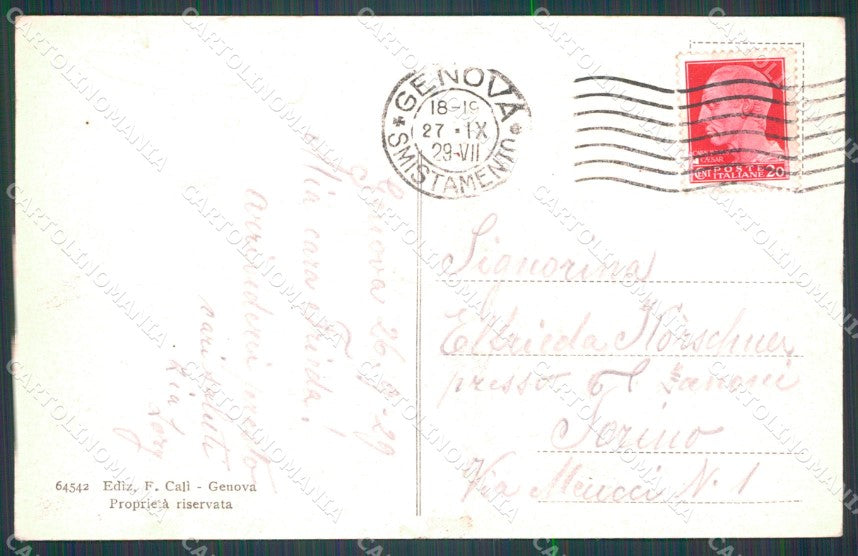 GENOVA
18-19
27 · IX
29-VII
SMISTAMENTO
CAESAR
CENT POSTE 20
ITALIANE
Genova 26-9-29
Mia cara Frida!
arrivederci presto
cari saluti
Lory
Signorina
Elfrieda Körschner
presso
Torino
Via Meucci N. 1
64542 Ediz. F. Calì - Genova
Proprietà riservata
CARTOLINOMANIA